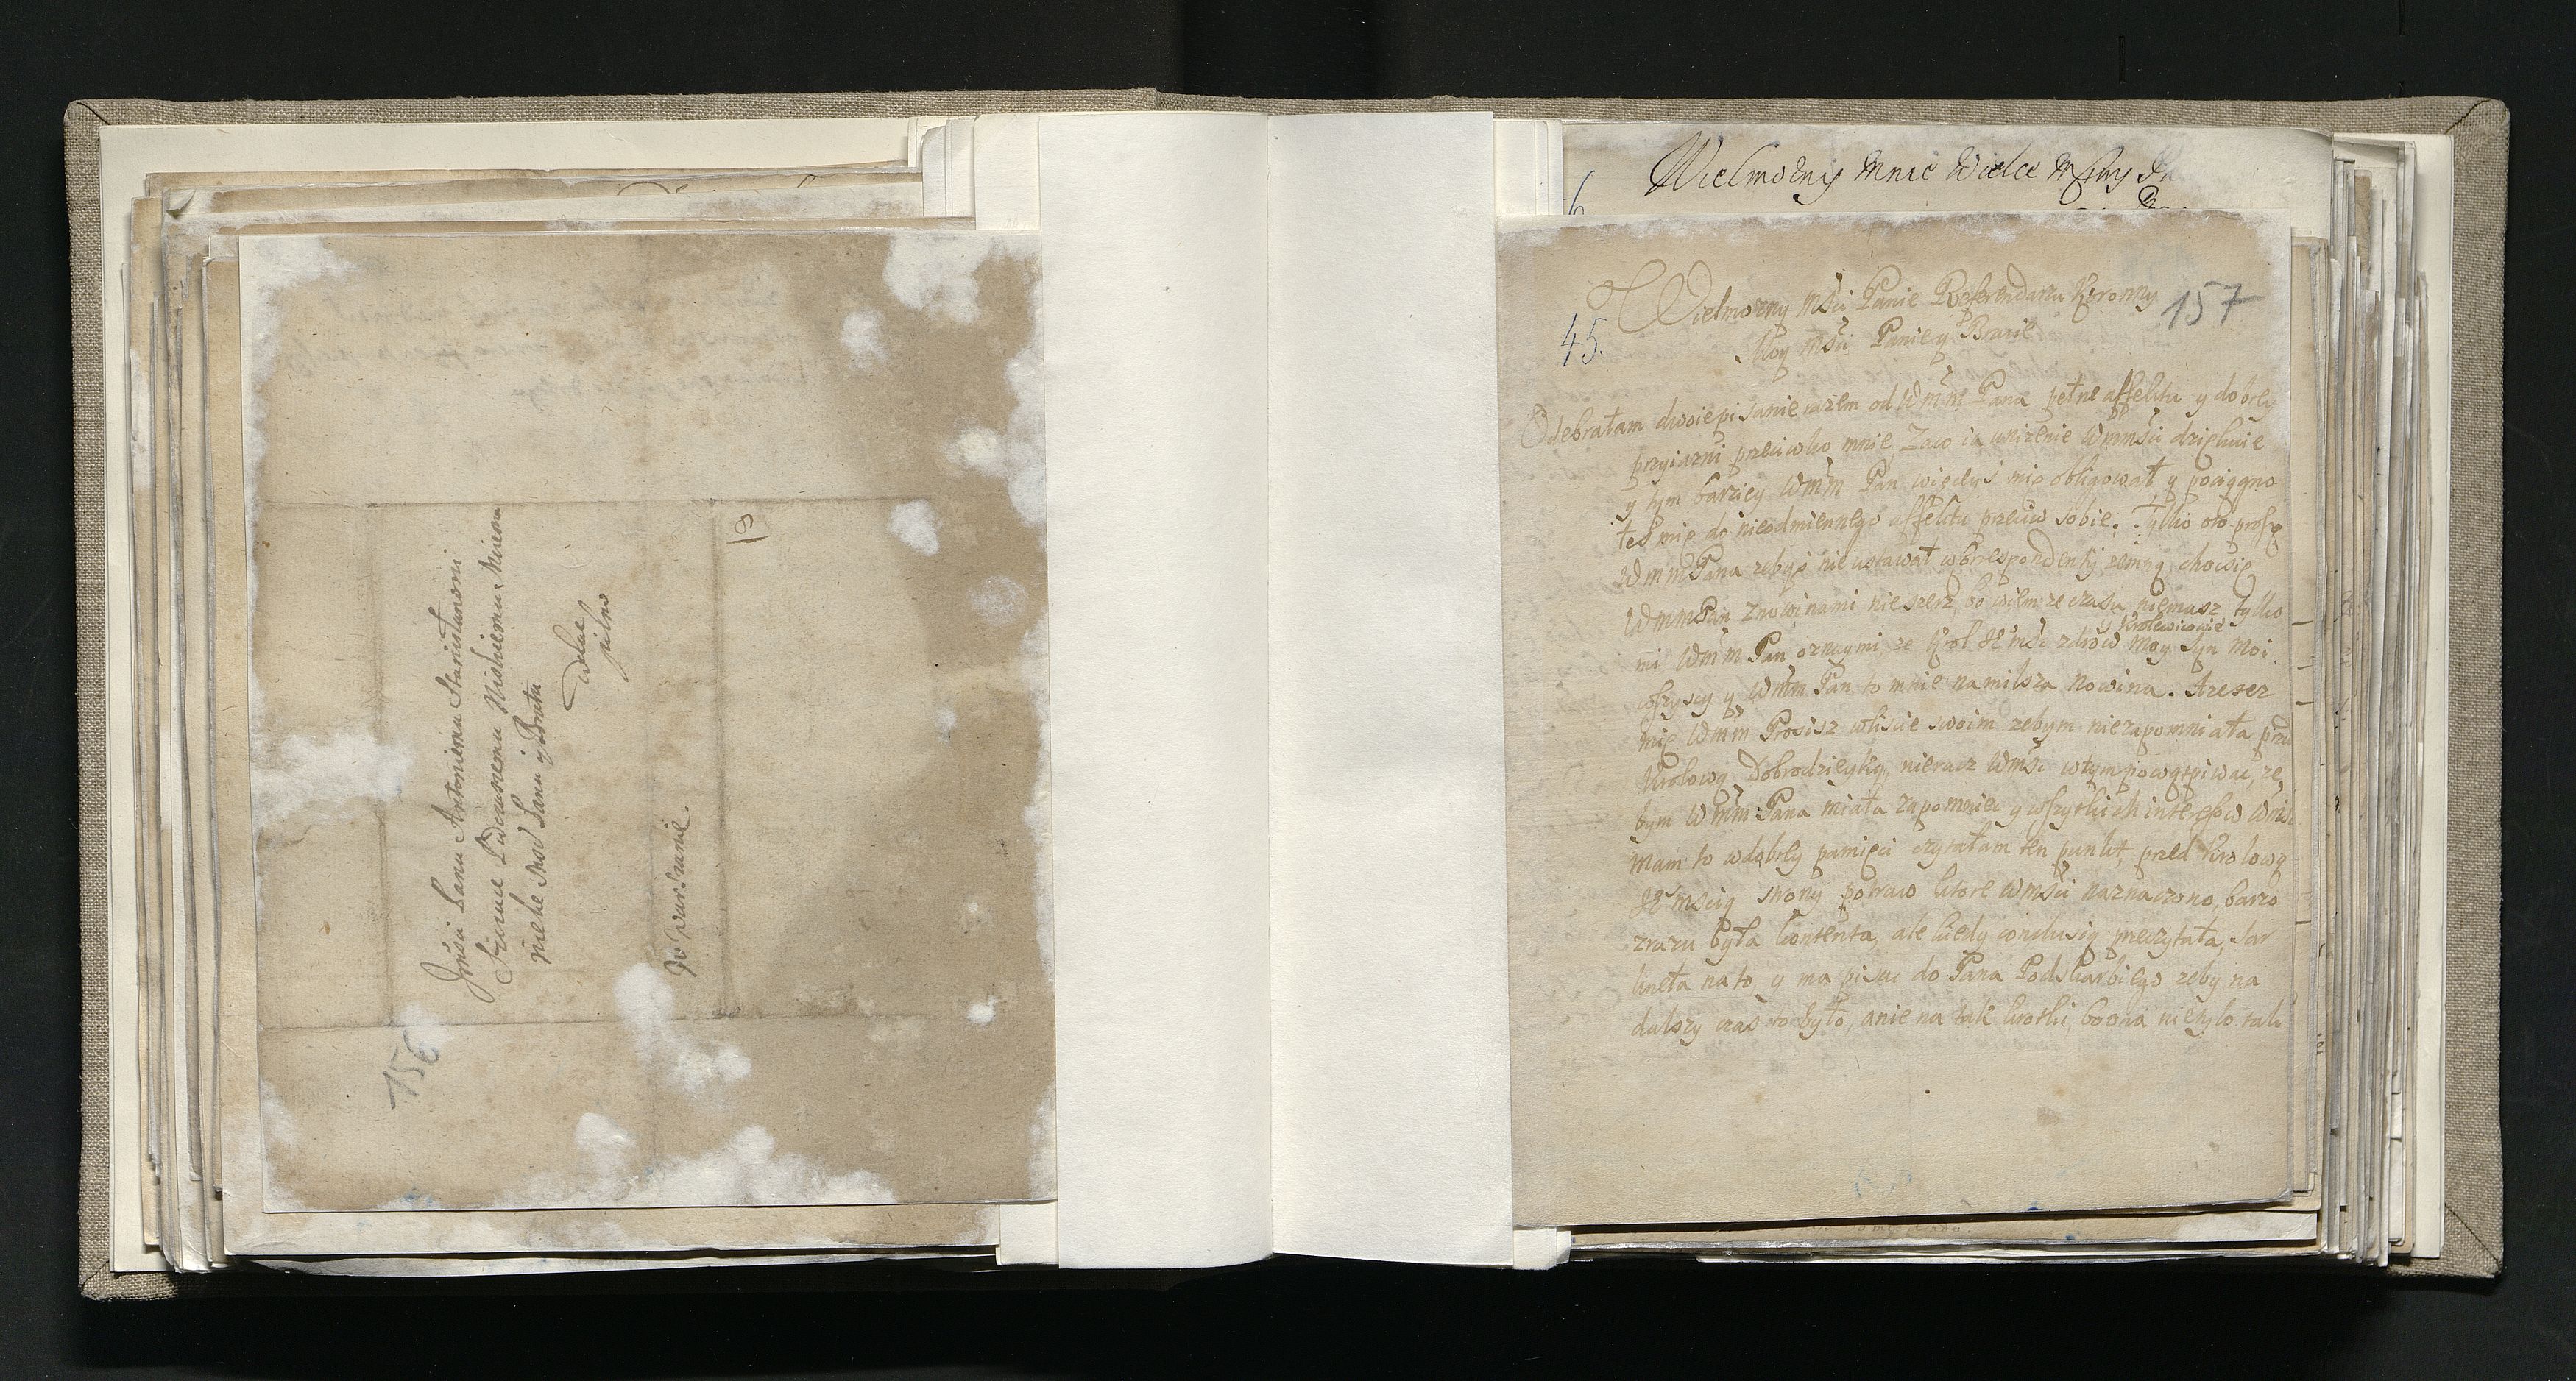 Jmści Panu Antoniemu Stanisławowi
Szczuce Podczaszemu Wiskiemu Memu
wielce Mos Panu y Bratu
oddac
pilno
W Warszawie.
156
Wielmozny mnie Wielce Msciwy
45.
157
Wielmozny Mści Panie Referendarzu Koronny
Moy Mści Panie y Bracie
Odebrałam dwoie pisanie razem od WMM Pana pełne affektu y dobrey
przyiazni przeciwko mnie, Zaco ia unizenie WMMści dziękuie
y tym barziey WMM Pan więcyś mię obligował y pociągno
łeś mię do nieodmiennego affektu przeciw sobie. Tylko oto proszę
WMMPana zebyś nie ustawał wkorrespondenty zemną, chocsię
WMMPan znowinami nieszerz, bo wiem ze czasu niemasz tylko
mi WMM Pan oznaymi, ze Krol JE Mśc zdrow Moy Syn Moi
y Krolewicowie
wszyscy y WMM Pan, to mnie namilsza nowina. A ze sez
mię WMM Prosisz wliscie swoim zebym niezapomniała przed
Krolową Dobrodzieyką, nieracz WMśc wtym powątpiwac, ze
bym WMM Pana miała zapomniec y wszytkich interesow WMś
mam to wdobrey pamięci czytałam ten punkt, przed Krolową
JE Mscią strony potraw ktore WMści naznaczono, barzo
zrazu była kontenta, ale kiedy conclusią przeczytała, sar
kneła na to, y ma pisac do Pana Podskarbiego zeby na
dalszy czas to było, anie na tak krotki, bo ona nietylo tak